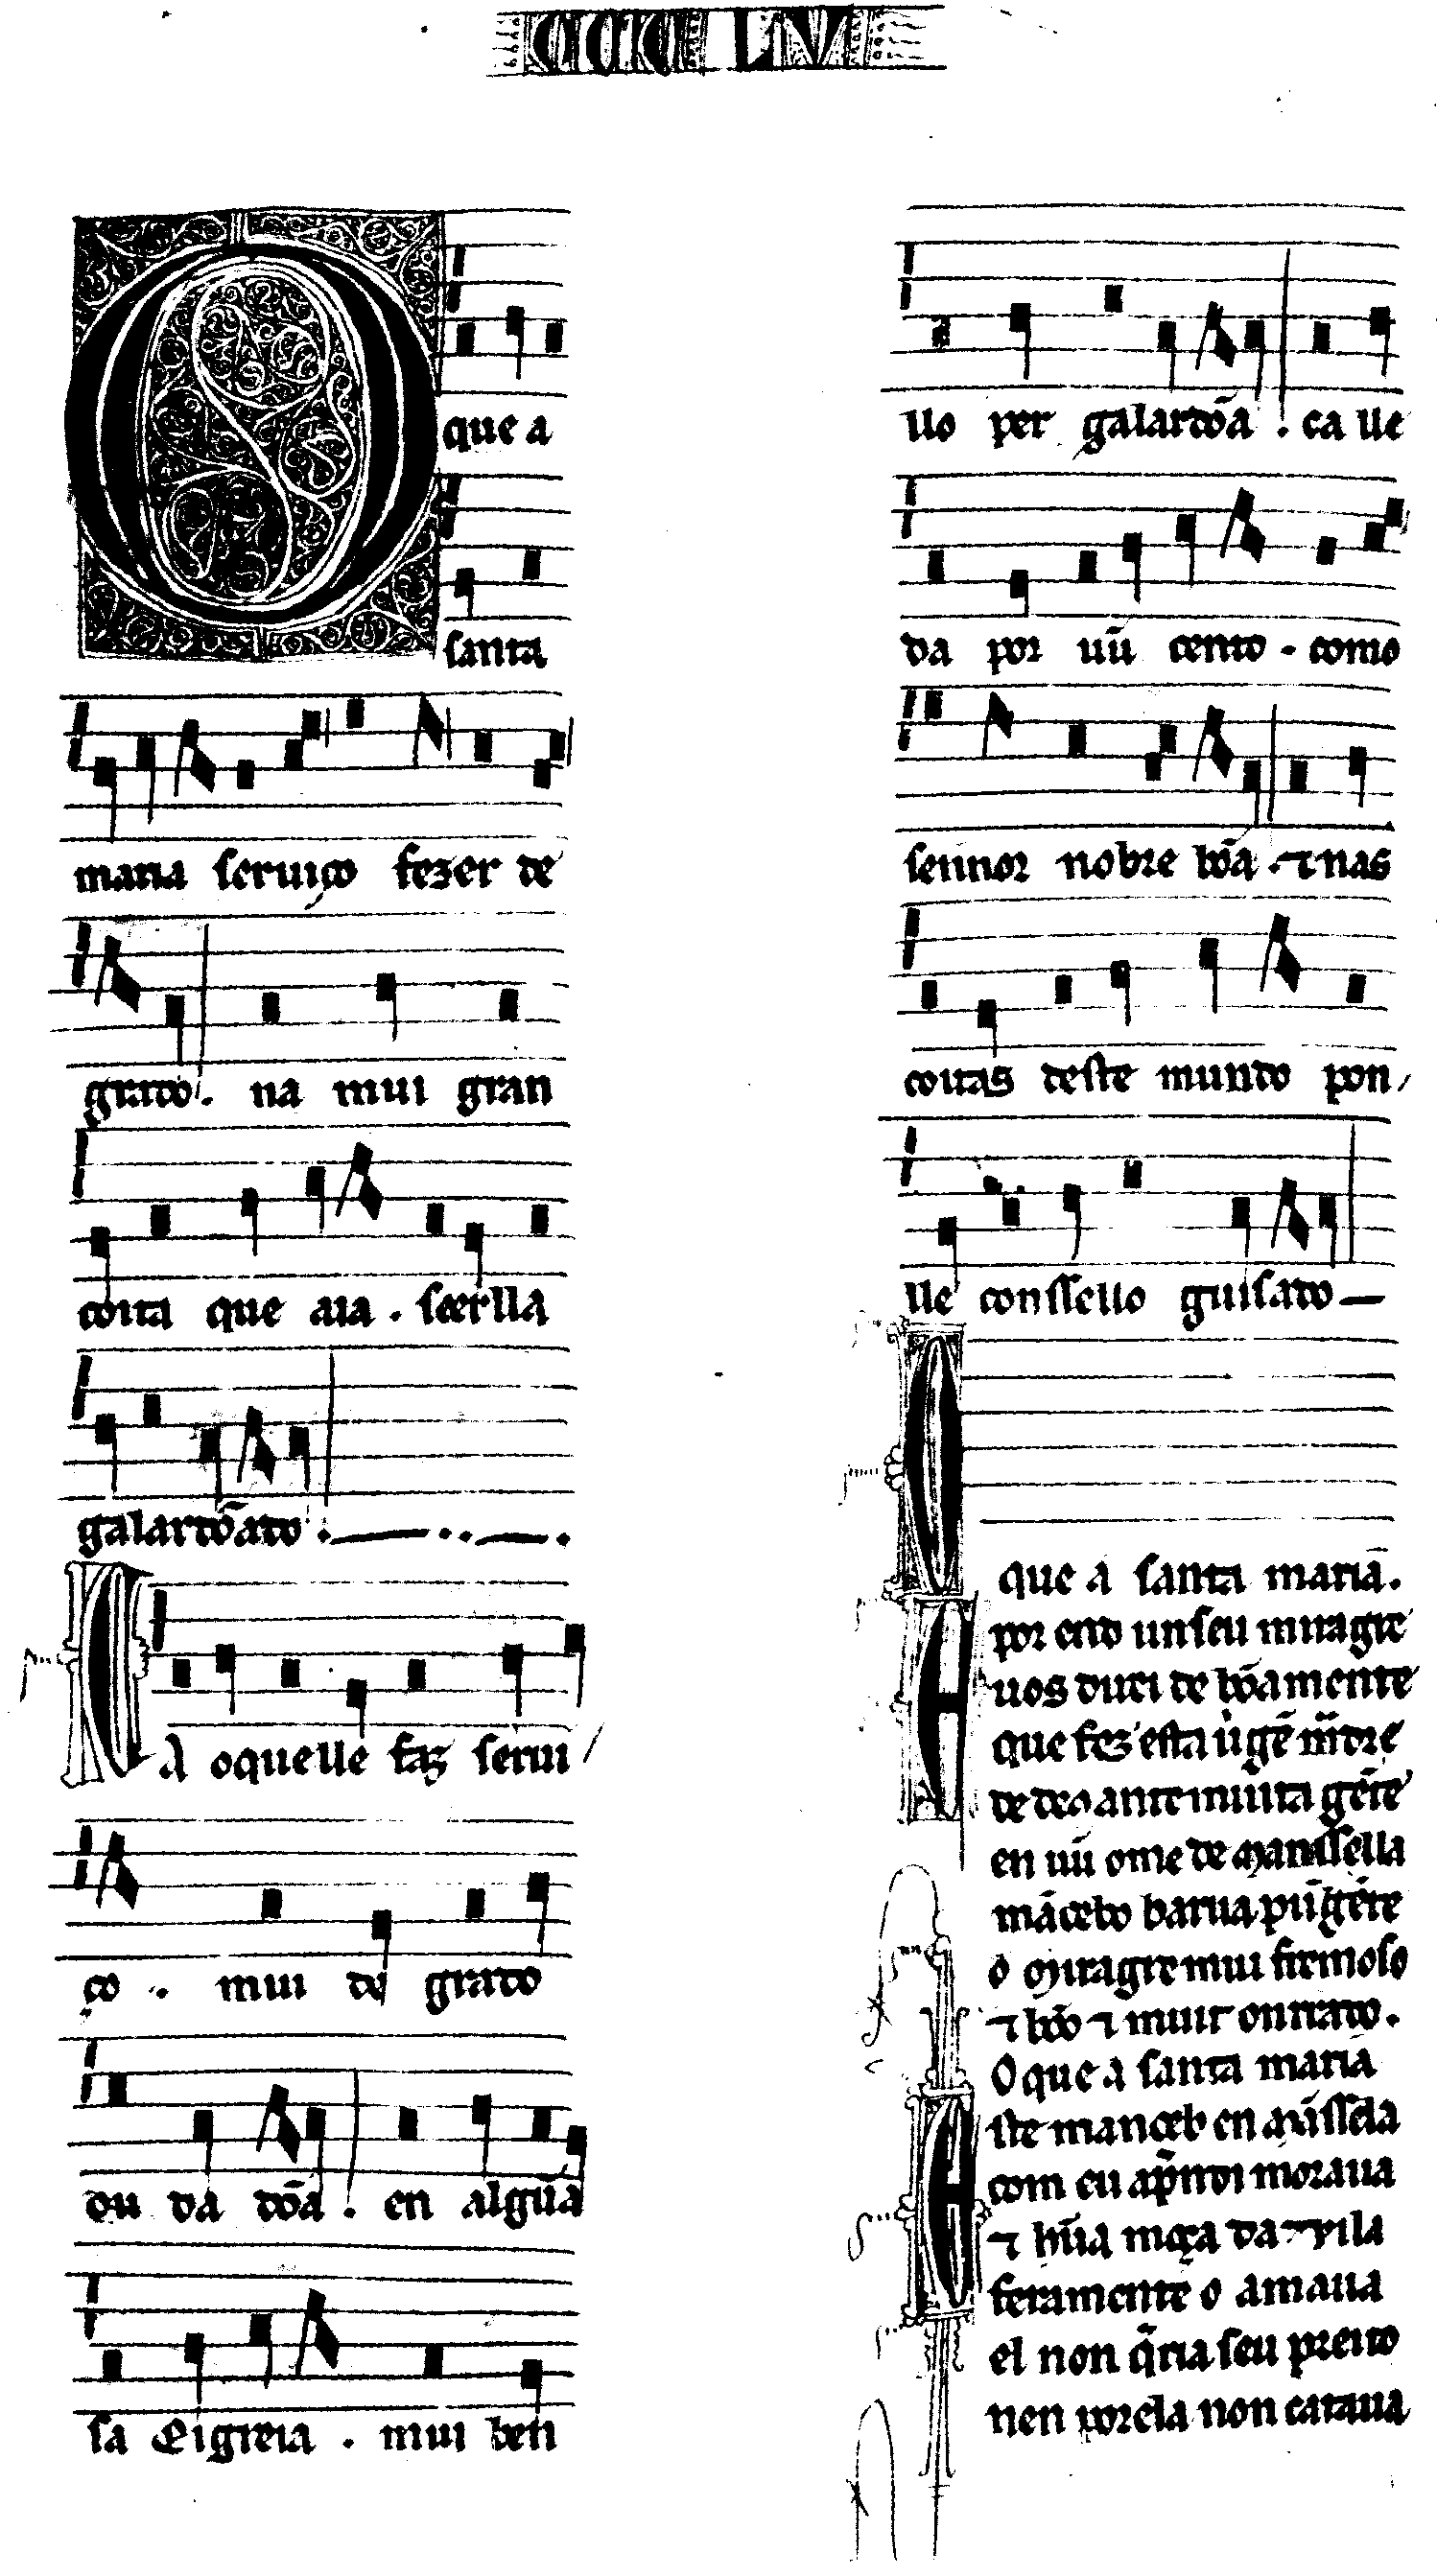 CCCLV
O que a
santa
maria seruiço fezer de
grado. na mui gran
coita que aia. seerlla
galardõado.
Ca oquelle faz serui
ço. mui de grado
ou da dõa. en algũa
sa Eigreia. mui ben
llo per galardõa. ca lle
da por uũ cento. como
sennor nobre bõa. ⁊ nas
coitas deste mundo pon
lle conssello guisado
O que a santa maria.
por end un seu miragre
uos direi de bõa mente
que fez esta uirgẽ mad̃re
de deo ante muita gẽte
en uũ ome de Manssella
mãcebo barua pũgẽte
o Miragre mui fremoso
⁊ bõo ⁊ muit onrrado.
O que a santa maria
Este manceb en Mãssela
com eu ap̃ndi moraua
⁊ hũa moça da vila
feramentẽ o amaua
el non q̃ria seu preito
nen por ela non cataua